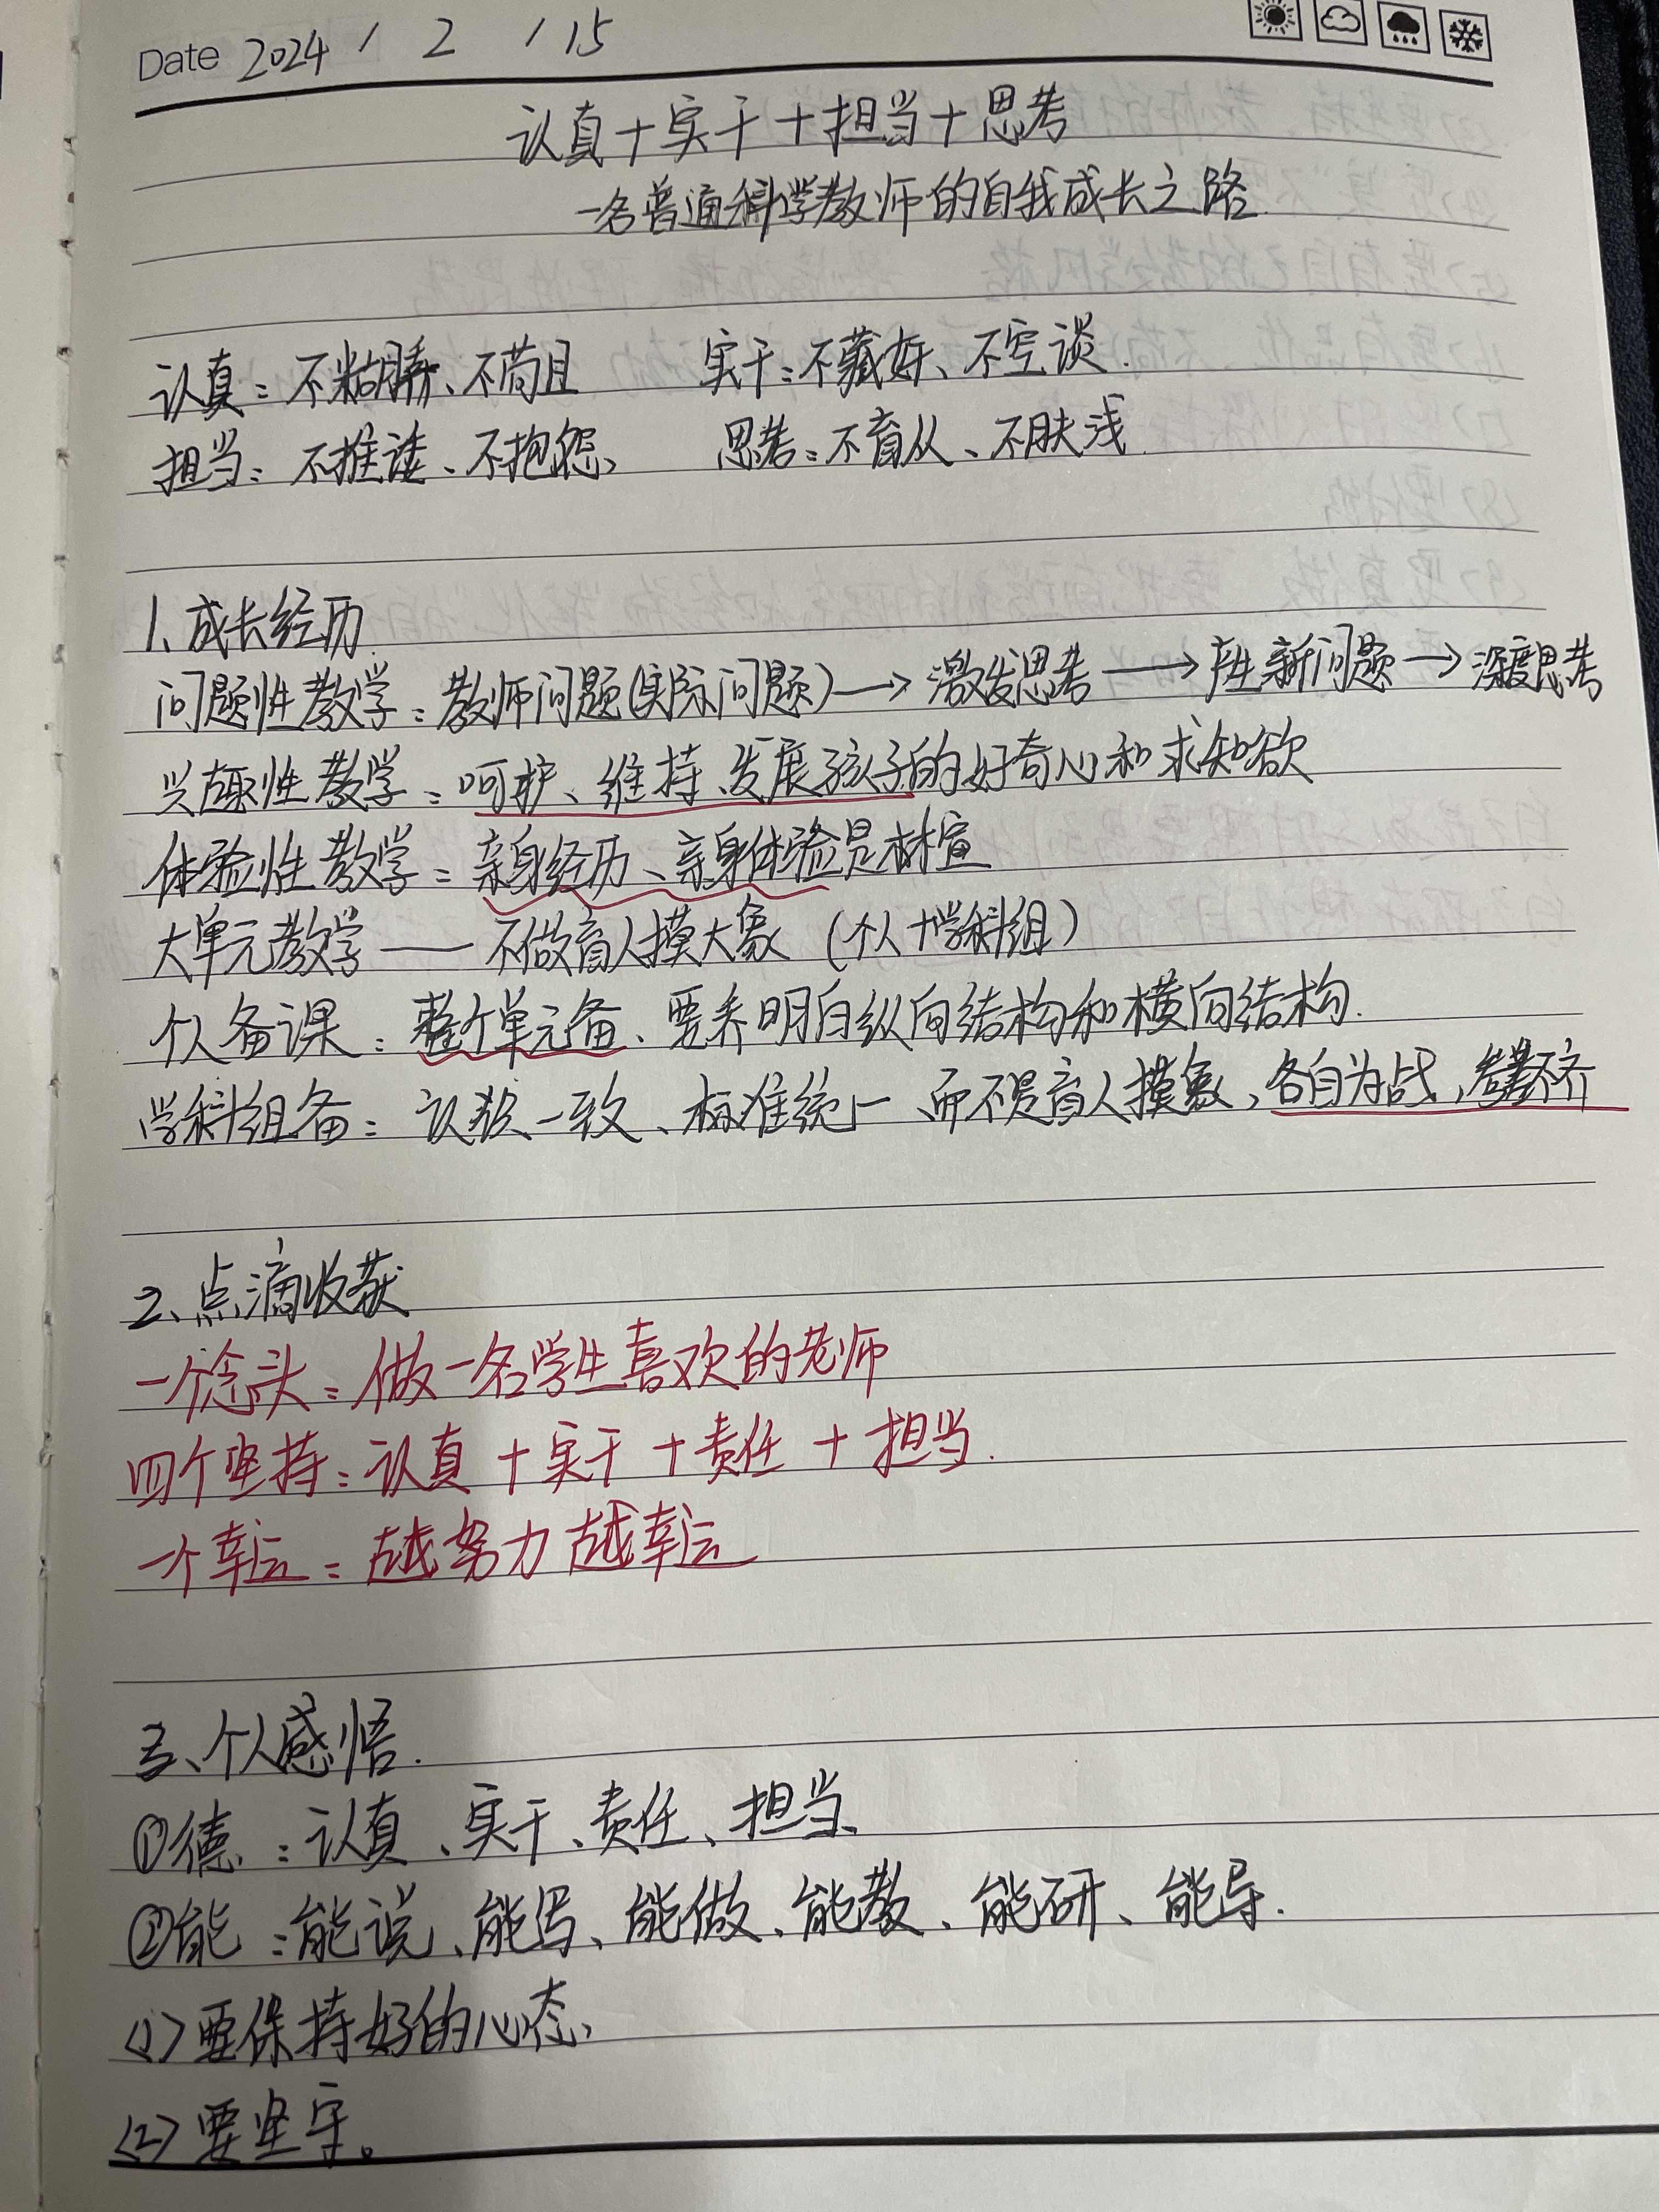 Date 2024 / 2 / 15
认真+实干+担当+思考
一名普通科学教师的自我成长之路
认真：不糊弄、不苟且 实干：不藏奸、不空谈.
担当：不推诿、不抱怨、 思考：不盲从、不肤浅.
1、成长经历.
问题性教学：教师问题(实际问题)→激发思考→产生新问题→深度思考
兴趣性教学：呵护、维持、发展孩子的好奇心和求知欲
体验性教学：亲身经历、亲身体验是
大单元教学——不做盲人摸大象(个人+学科组)
个人备课：整个单元备、要弄明白纵向结构和横向结构.
学科组备：认识一致、标准统一 而不是盲人摸象，各自为战，参差不齐
2、点滴收获
一个念头：做一名学生喜欢的老师
四个坚持：认真+实干+责任+担当.
一个幸运：越努力越幸运
三、个人感悟.
①德：认真、实干、责任、担当、
②能：能说、能写、能做、能教、能研、能导.
(1)要保持好的心态、
(2)要坚守。